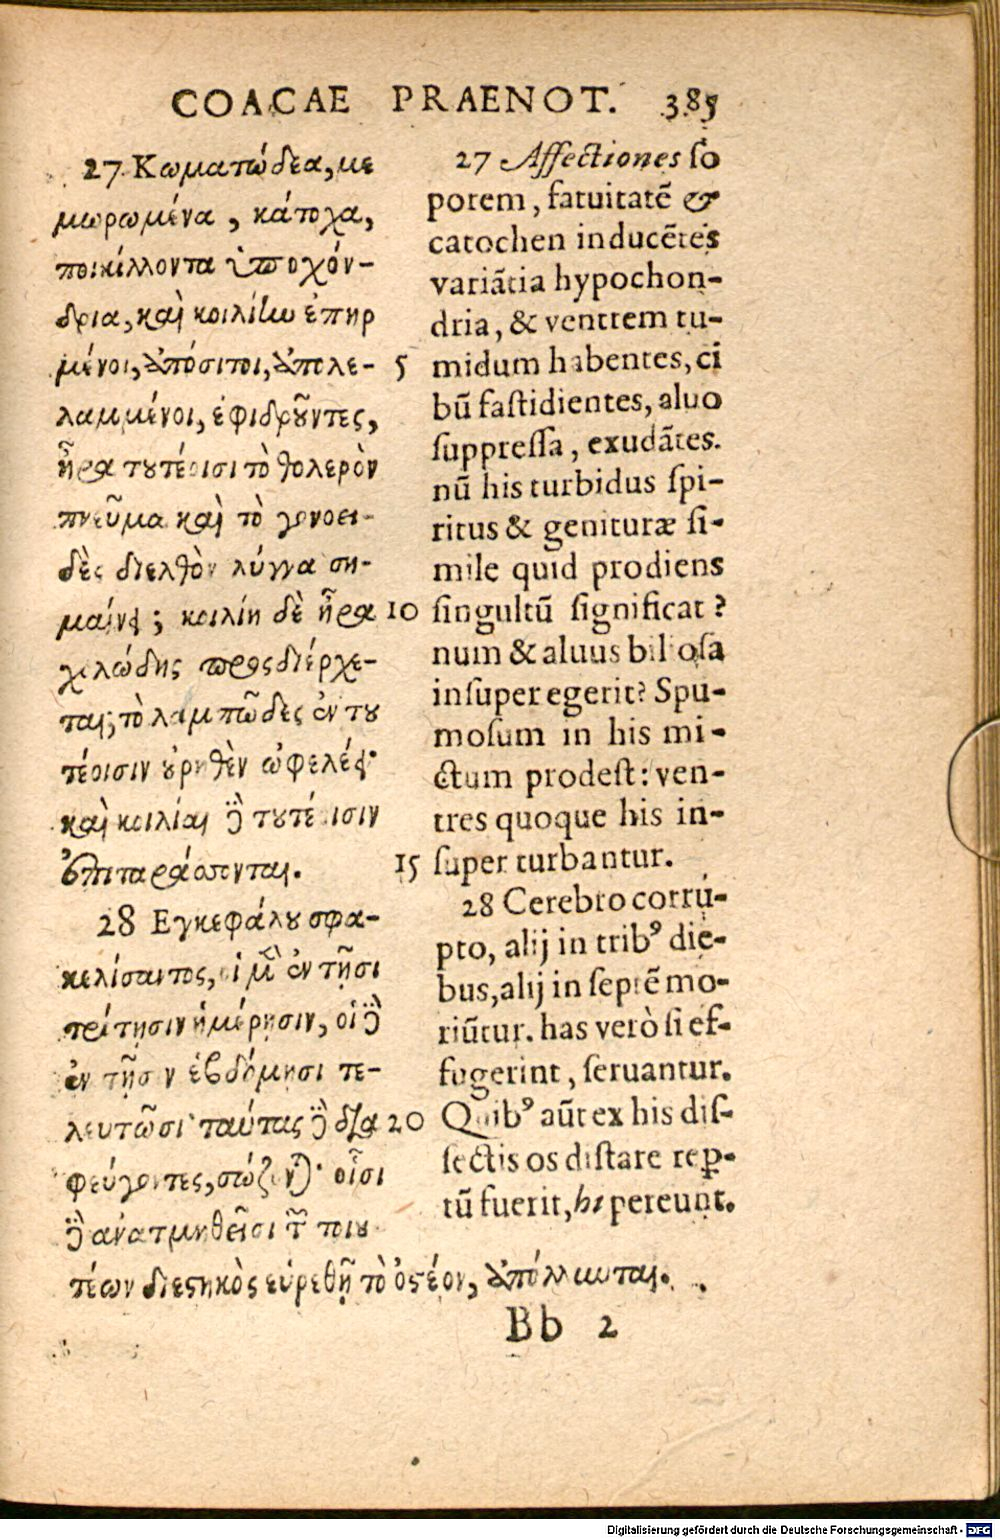 COACAE PRAENOT. 385
27 Κωματώδεα, με
μωρωμένα, κάτοχα,
ποικίλλοντα ὑποχόν-
δρια, καὶ κοιλίην ἐπηρ
μένοι, ἀπόσιτοι, ἀπολε-
λαμμένοι, ἐφιδροῦντες,
ἦρα τουτέοισι τὸ θολερὸν
πνεῦμα καὶ τὸ γονοει-
δὲς διελθὸν λύγγα ση-
μαίνει; κοιλίη δὲ ἦρα
χολώδης προςδιέρχε-
ται; τὸ λαμπῶδες ἐν του
τέοισιν οὐρηθὲν ὠφελέει·
καὶ κοιλίαι δὲ τουτέοισιν
ἐπιταράσσονται.
28 Εγκεφάλου σφα-
κελίσαντος, οἱ μὲν ἐν τῇσι
τρίτησιν ἡμέρησιν, οἱ δὲ
ἐν τῇσιν ἑβδόμησι τε-
λευτῶσι· ταύτας δὲ δια
φεύγοντες, σώζονται· οἷσι
δὲ ἀνατμηθεῖσι τῶν τοιου
τέων διεστηκὸς εὑρεθῇ τὸ ὀστέον, ἀπόλλυνται.
5
10
15
20
27 Affectiones ſo
porem, fatuitatē &
catochen inducētes
variātia hypochon-
dria, & ventrem tu-
midum habentes, ci
bū faſtidientes, aluo
ſuppreſſa, exudātes.
nū his turbidus ſpi-
ritus & genituræ ſi-
mile quid prodiens
ſingultū ſignificat?
num & aluus bilioſa
inſuper egerit? Spu-
moſum in his mi-
ctum prodeſt: ven-
tres quoque his in-
ſuper turbantur.
28 Cerebro corrū-
pto, alij in tribꝰ die-
bus, alij in ſeptē mo-
riūtur. has verò ſi ef-
fugerint, ſeruantur.
Quibꝰ aūt ex his diſ-
ſectis os diſtare rep̱-
tū fuerit, hi pereunt.
Bb 2
Digitalisierung gefördert durch die Deutsche Forschungsgemeinschaft - DFG